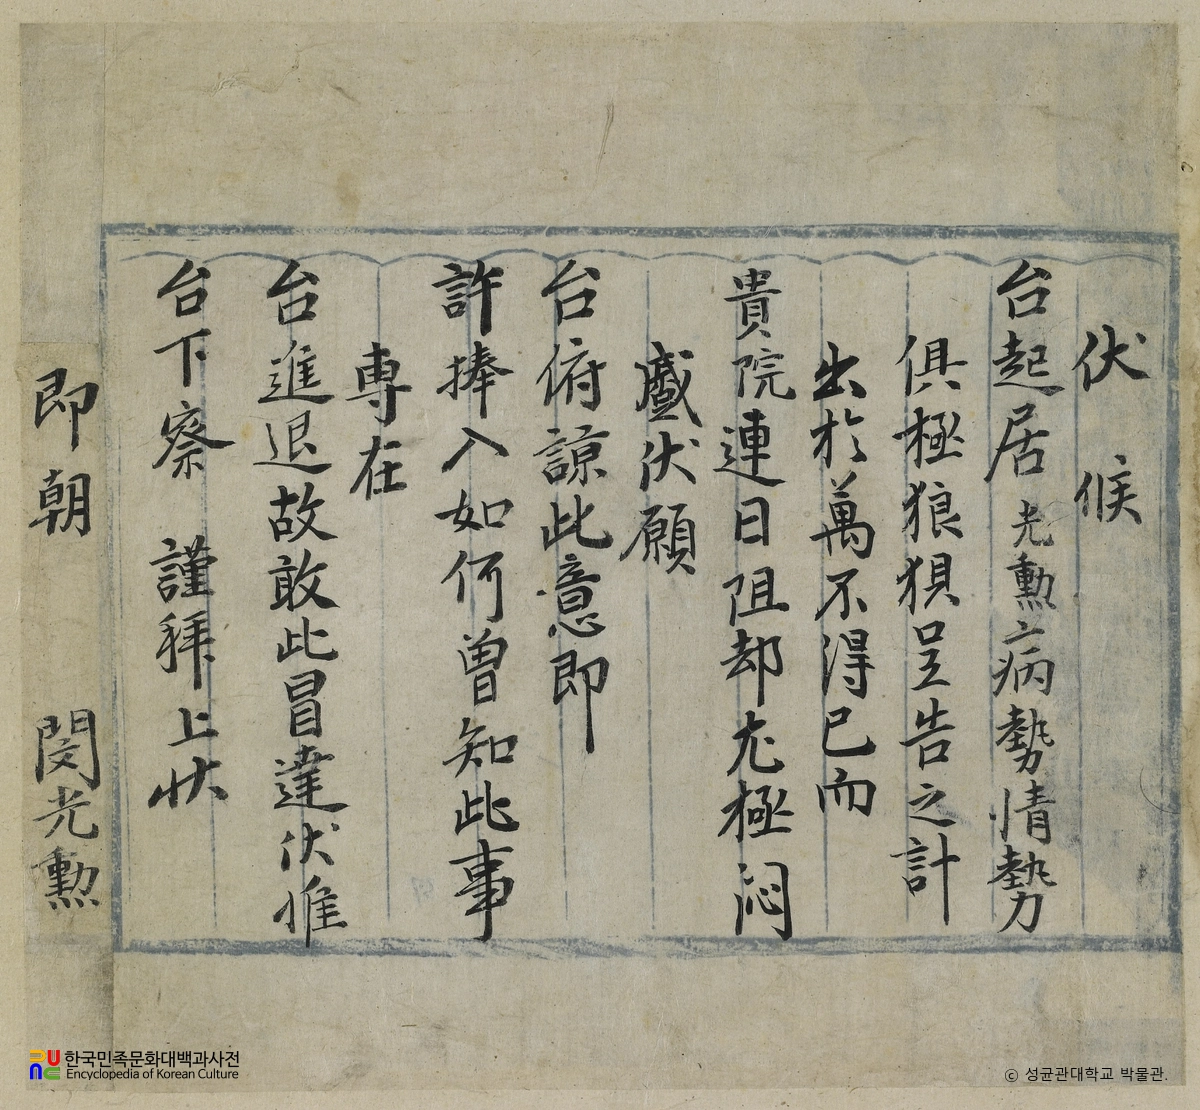 伏候
台起居光勳病勢情勢
俱極狼狽呈告之計
出於萬不得已而
貴院連日阻却尤極悶
蹙伏願
台俯諒此意即
許捧入如何曾知此事
專在
台進退故敢此冒達伏惟
台下察 謹拜上狀
即朝 閔光勳
한국민족문화대백과사전
Encyclopedia of Korean Culture
ⓒ 성균관대학교 박물관.